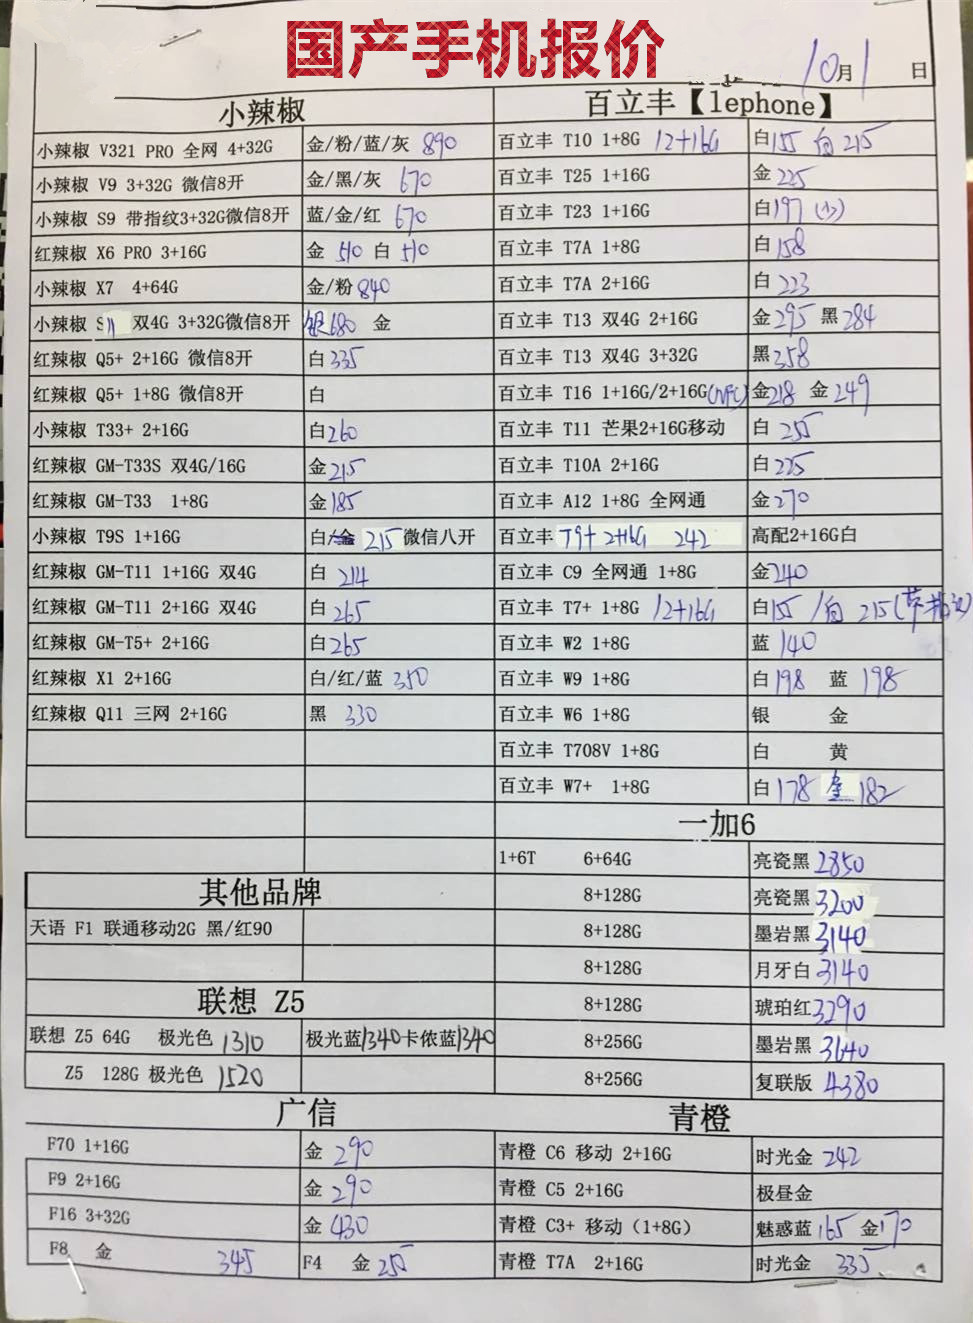 国产手机报价
10月1日
小辣椒
小辣椒 V321 PRO 全网 4+32G 金/粉/蓝/灰 890
小辣椒 V9 3+32G 微信8开 金/黑/灰 670
小辣椒 S9 带指纹3+32G微信8开 蓝/金/红 670
红辣椒 X6 PRO 3+16G 金 510 白 510
小辣椒 X7 4+64G 金/粉 840
小辣椒 S11 双4G 3+32G微信8开 银680 金
红辣椒 Q5+ 2+16G 微信8开 白335
红辣椒 Q5+ 1+8G 微信8开 白
小辣椒 T33+ 2+16G 白260
红辣椒 GM-T33S 双4G/16G 金215
红辣椒 GM-T33 1+8G 金185
小辣椒 T9S 1+16G 白/金 215 微信八开
红辣椒 GM-T11 1+16G 双4G 白 214
红辣椒 GM-T11 2+16G 双4G 白265
红辣椒 GM-T5+ 2+16G 白265
红辣椒 X1 2+16G 白/红/蓝 350
红辣椒 Q11 三网 2+16G 黑 330
其他品牌
天语 F1 联通移动2G 黑/红90
联想 Z5
联想 Z5 64G 极光色 1310 极光蓝1340卡侬蓝1340
Z5 128G 极光色 1520
广信
F70 1+16G 金 290
F9 2+16G 金 290
F16 3+32G 金 430
F8 金 345 F4 金 255
百立丰【lephone】
百立丰 T10 1+8G 12+16G 白155 白 215
百立丰 T25 1+16G 金225
百立丰 T23 1+16G 白197(少)
百立丰 T7A 1+8G 白158
百立丰 T7A 2+16G 白 223
百立丰 T13 双4G 2+16G 金295 黑284
百立丰 T13 双4G 3+32G 黑358
百立丰 T16 1+16G/2+16G(NFC) 金218 金249
百立丰 T11 芒果2+16G移动 白 255
百立丰 T10A 2+16G 白225
百立丰 A12 1+8G 全网通 金270
百立丰 T9+ 2+16G 242 高配2+16G白
百立丰 C9 全网通 1+8G 金240
百立丰 T7+ 1+8G 12+16G 白155 /白 215(
百立丰 W2 1+8G 蓝 140
百立丰 W9 1+8G 白198 蓝 198
百立丰 W6 1+8G 银 金
百立丰 T708V 1+8G 白 黄
百立丰 W7+ 1+8G 白178 金182
一加6
1+6T 6+64G 亮瓷黑2850
8+128G 亮瓷黑3200
8+128G 墨岩黑3140
8+128G 月牙白3140
8+128G 琥珀红3290
8+256G 墨岩黑3640
8+256G 复联版 4380
青橙
青橙 C6 移动 2+16G 时光金 242
青橙 C5 2+16G 极昼金
青橙 C3+ 移动（1+8G） 魅惑蓝165 金170
青橙 T7A 2+16G 时光金 335